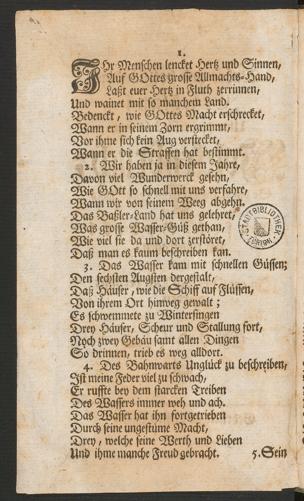 1.
IHr Menschen lencket Hertz und Sinnen,
Auf GOttes grosse Allmachts-Hand,
Laßt euer Hertz in Fluth zerrinnen,
Und wainet mit so manchem Land.
Bedenckt, wie GOttes Macht erschrecket,
Wann er in seinem Zorn ergrimmt,
Vor ihme sich kein Aug verstecket,
Wann er die Straffen hat bestimmt.
2. Wir haben ja in diesem Jahre,
Davon viel Wunderwerck gesehn,
Wie GOtt so schnell mit uns verfahre,
Wann wir von seinem Weeg abgehn.
Das Baßler-Land hat uns gelehret,
Was grosse Wasser-Güß gethan,
Wie viel sie da und dort zerstöret,
Daß man es kaum beschreiben kan.
STADTBIBLIOTHEK
ZÜRICH.
3. Das Wasser kam mit schnellen Güssen;
Den sechsten Augsten dergestalt,
Daß Häuser, wie die Schiff auf Flüssen,
Von ihrem Ort hinweg gewalt;
Es schwemmete zu Wintersingen
Drey Häuser, Scheur und Stallung fort,
Noch zwey Gebäu samt allen Dingen
So drinnen, trieb es weg alldort.
4. Des Bahnwarts Unglück zu beschreiben,
Ist meine Feder viel zu schwach,
Er ruffte bey dem starcken Treiben
Des Wassers immer weh und ach.
Das Wasser hat ihn fortgetrieben
Durch seine ungestüme Macht,
Drey, welche seine Werth und Lieben
Und ihme manche Freud gebracht. 5. Sein